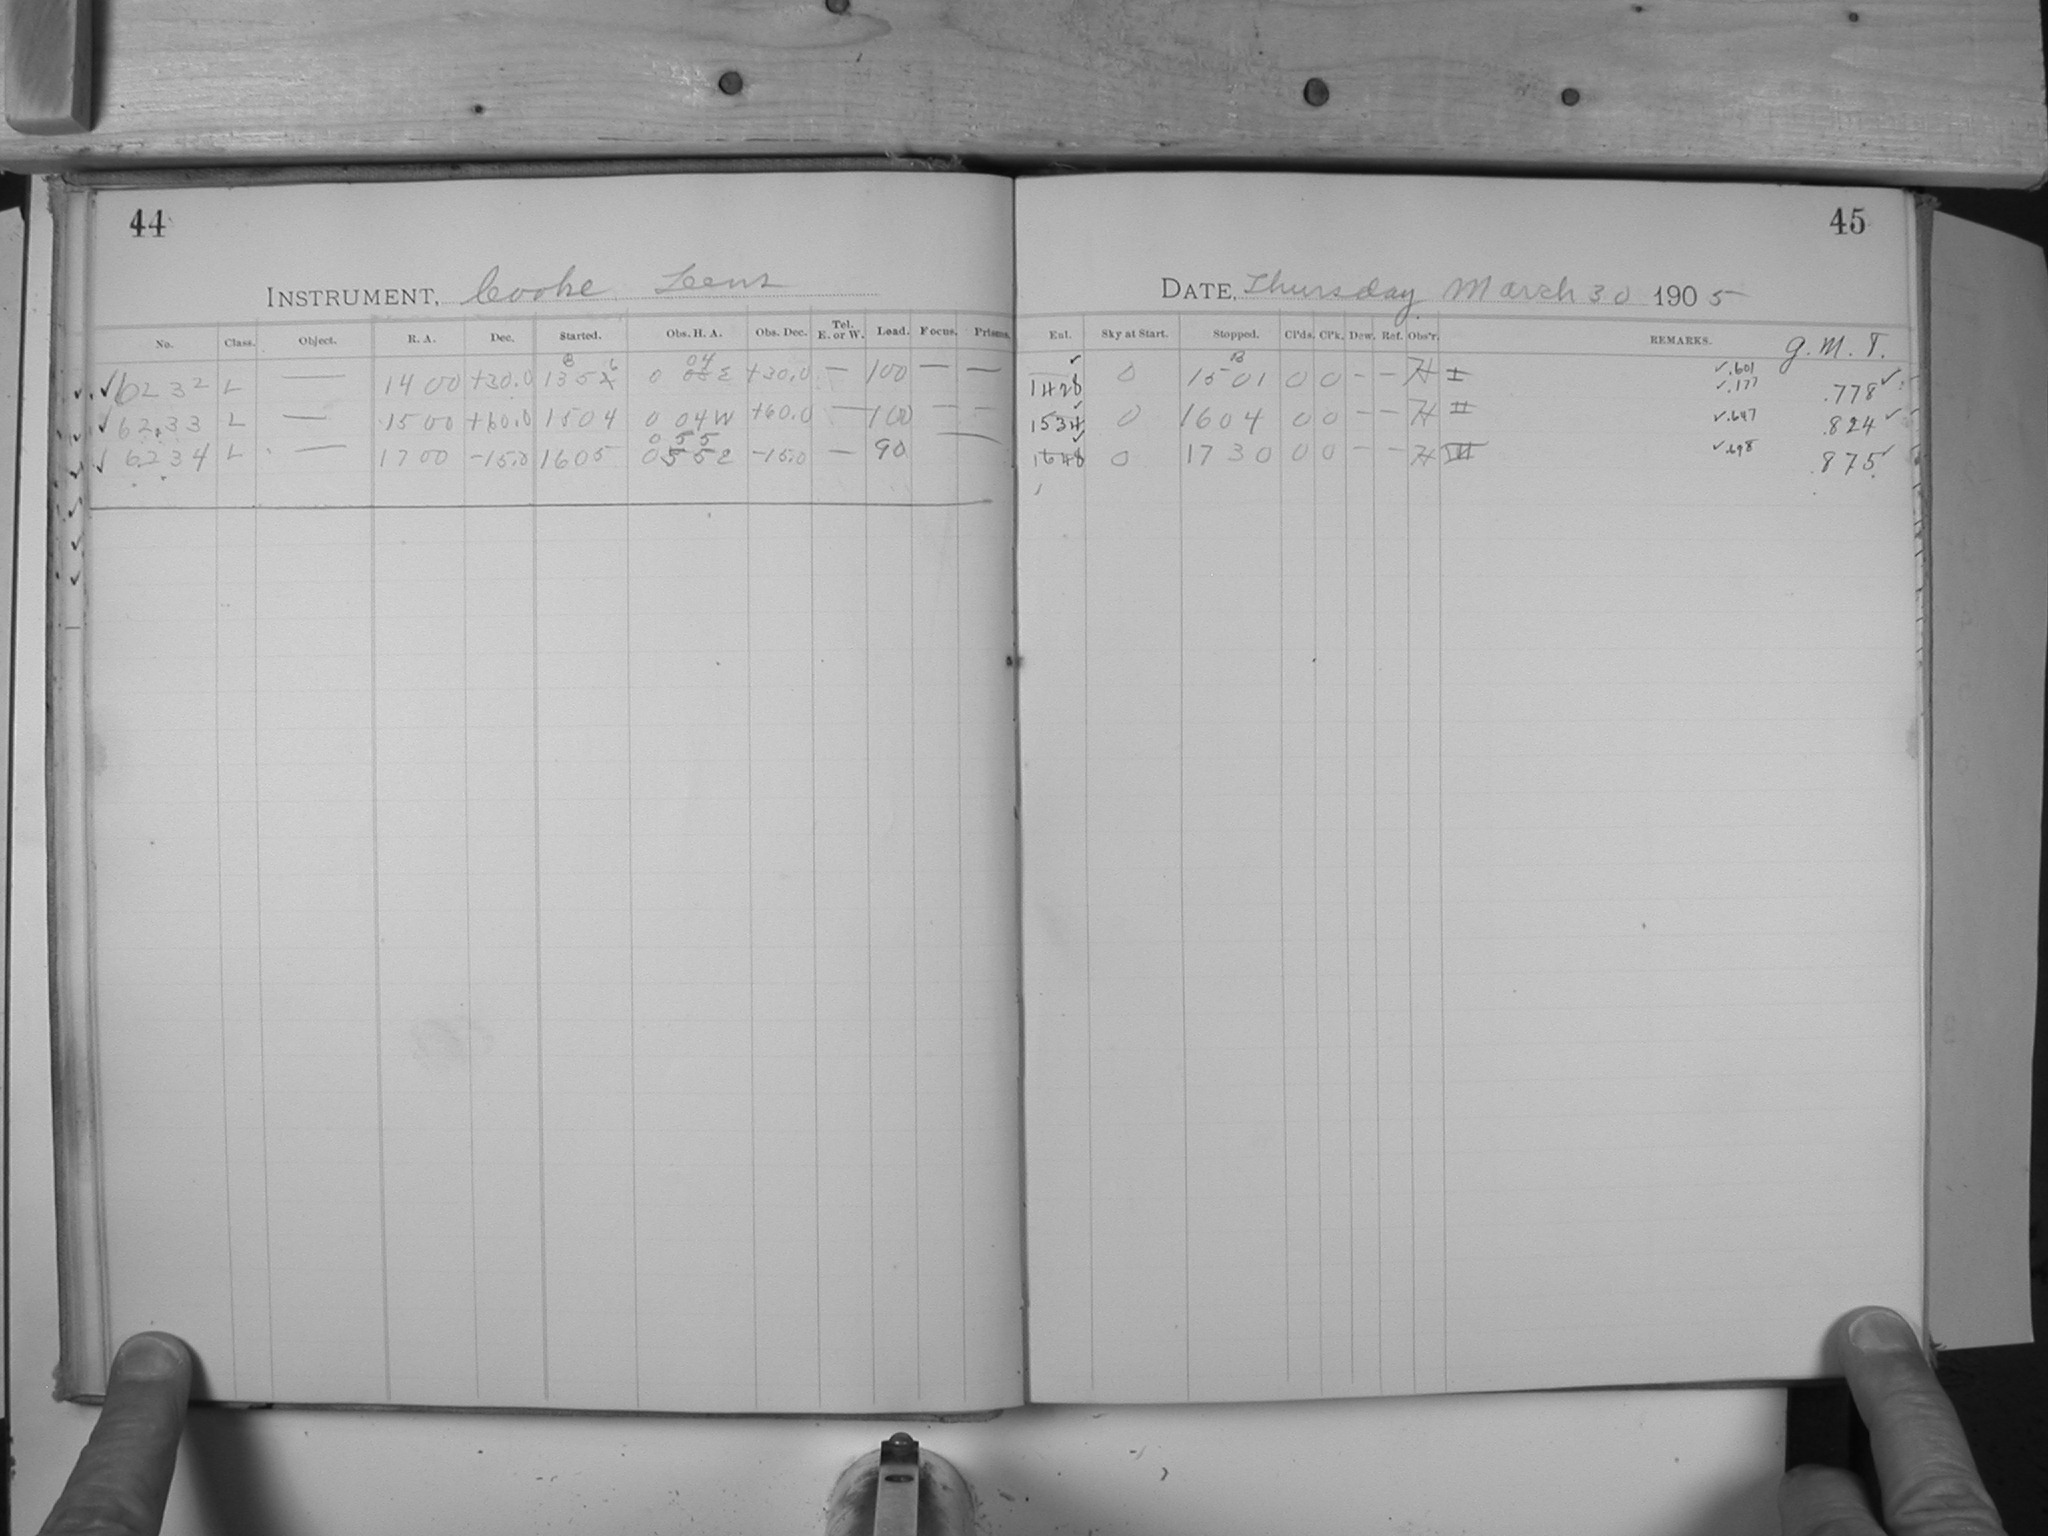 44
INSTRUMENT, Cooke Lens
No. Class. Object. R. A. Dec. Started. Obs. H. A. Obs. Dec. Tel. E. or W. Load. Focus. Prisms.
B 6 04
✓6232 L — 14 00 +30.0 135 0 E +30.0 — 100 — —
✓6233 L — 1500 +60.0 1504 0 04W +60.0 — 100 — —
0 55
✓6234 L — 1700 -15.0 1605 055E -15.0 — 90
45
DATE, Thursday March 30 1905
Eul. Sky at Start. Stopped. Cl'ds. Cl'k. Dew. Ref. Obs'r. REMARKS. G. M. T.
✓ B ✓.601
1428 0 1501 0 0 - - H I ✓.177 .778✓
1534✓ 0 1604 0 0 - - H II ✓.647 .824✓
1648✓ 0 1730 0 0 - - H III ✓.698 .875✓